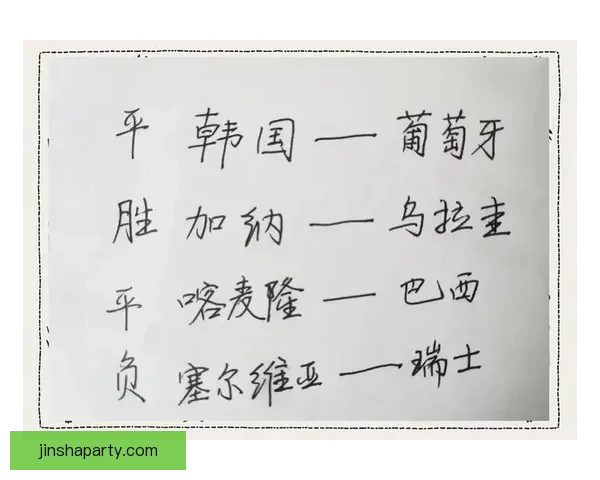 平 韩国 — 葡萄牙
胜 加纳 — 乌拉圭
平 喀麦隆 — 巴西
负 塞尔维亚 — 瑞士
jinshaparty.com